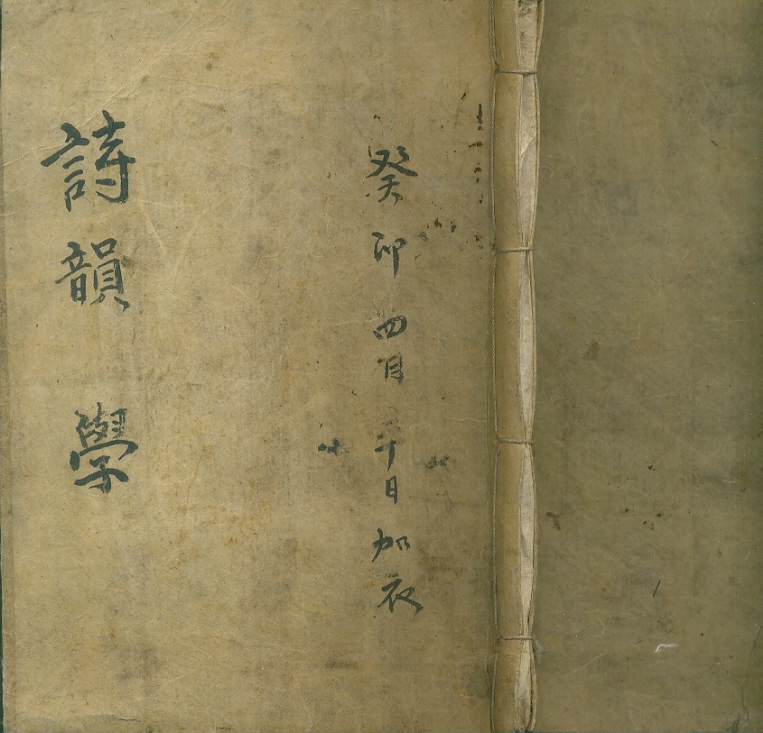 癸卯四月二十日加衣
詩韻學